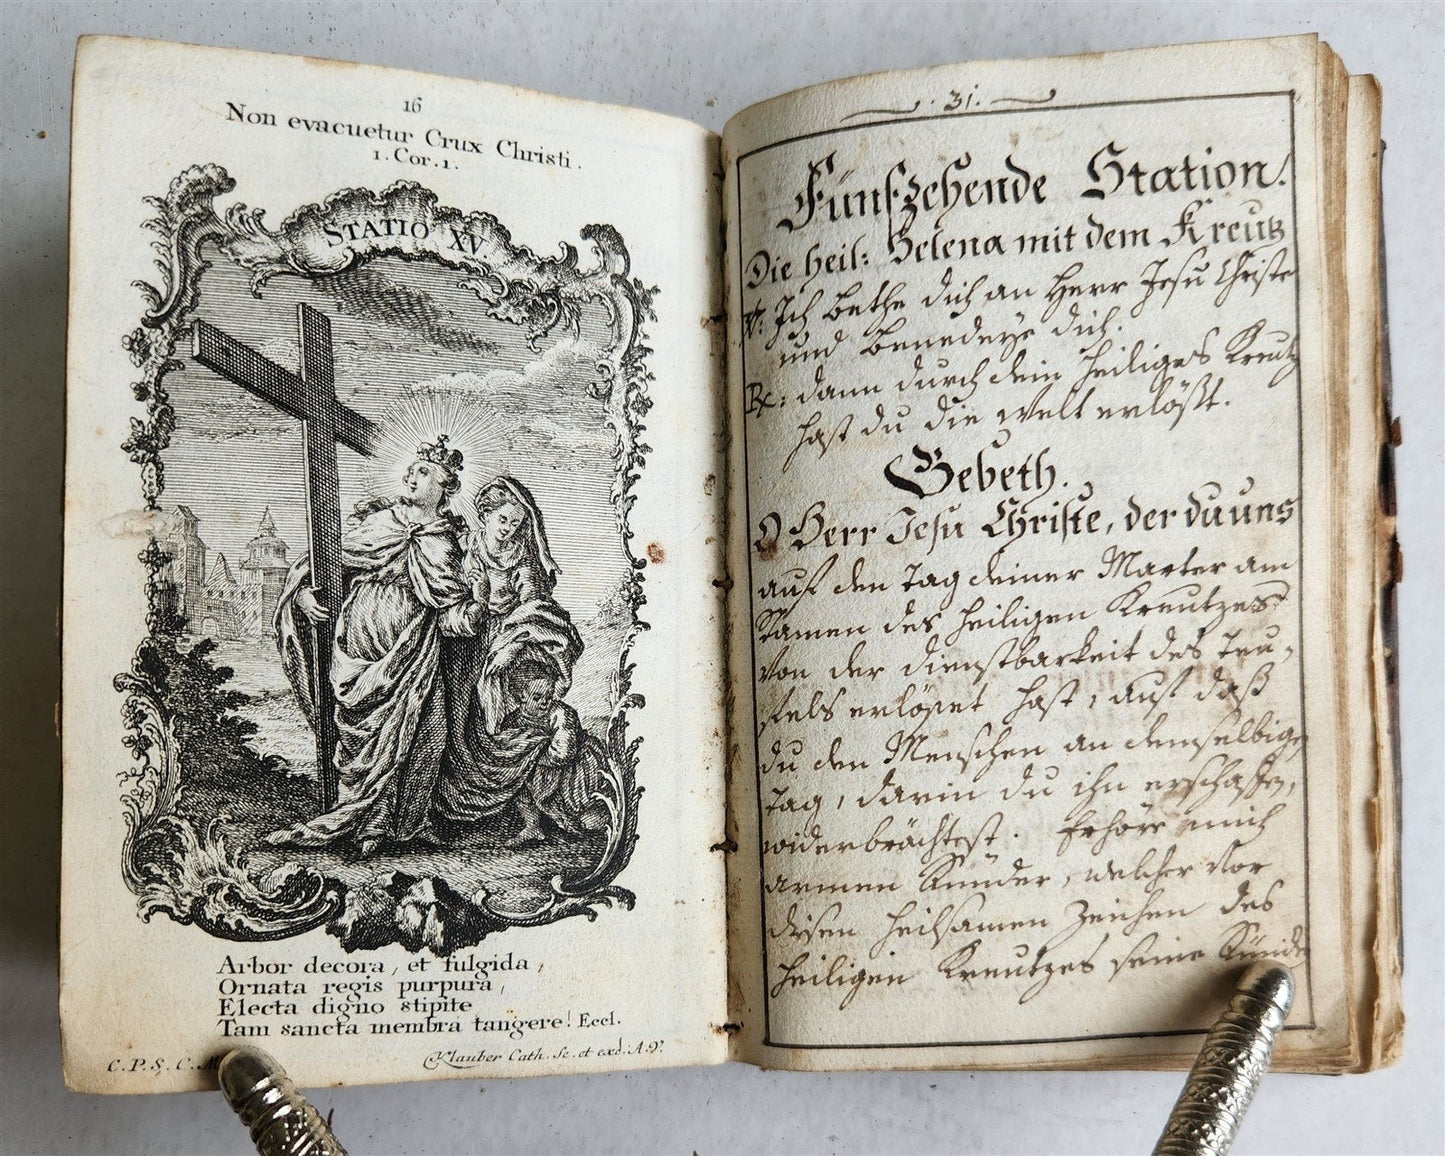 16
Non evacuetur Crux Christi.
1. Cor. 1.
STATIO XV
Arbor decora, et fulgida,
Ornata regis purpura,
Electa digno stipite
Tam sancta membra tangere! Eccl.
C. P. S. C. M.
Klauber Cath. Sc. et exc. A. V.
. 31. 
Fünfzehende Station.
Die heil: Helena mit dem Kreutz
℣: Ich bethe dich an Herr Jesu Christe
und benedeye dich.
℞: dann durch dein heiliges Kreutz
hast du die Welt erlößt.
Gebeth.
O Herr Jesu Christe, der du uns
auf den Tag deiner Marter am
Stamen des heiligen Kreutzes
von der dienstbarkeit des Teu-
fels erlöset hast, auf daß
du den Menschen an demselbigen
Tag, darin du ihn erschaffen,
widerbrächtest. Erhöre mich
armen Sünder, welcher vor
disen heilsamen Zeichen des
heiligen Kreutzes seine Sünde